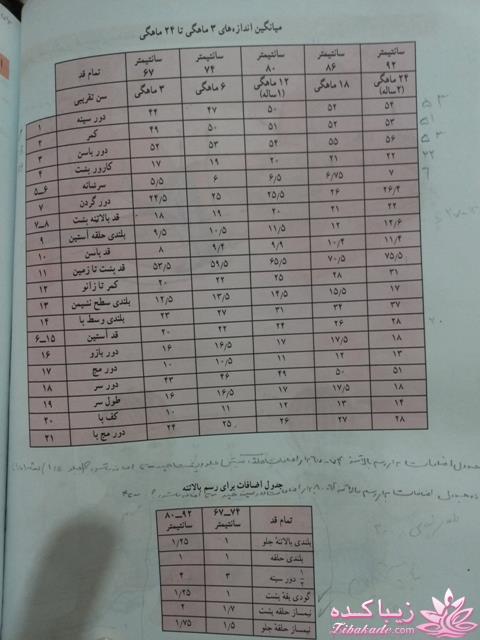 میانگین اندازه‌های ۳ ماهگی تا ۲۴ ماهگی
سانتیمتر سانتیمتر سانتیمتر سانتیمتر سانتیمتر تمام قد
۹۲ ۸۶ ۸۰ ۷۴ ۶۷
۲۴ ماهگی ۱۸ ماهگی ۱۲ ماهگی ۶ ماهگی ۳ ماهگی سن تقریبی
(۲ساله) (۱ساله)
۵۴ ۵۲ ۵۰ ۴۷ ۴۴ دور سینه ۱
۵۳ ۵۲ ۵۱ ۵۰ ۴۹ کمر ۲
۵۶ ۵۵ ۵۴ ۵۳ ۵۲ دور باسن ۳
۲۲ ۲۱ ۲۰ ۱۹ ۱۷ کارور پشت ۴
۷ ۶/۷۵ ۶/۵ ۶ ۵/۵ سرشانه ۵_۶
۲۶/۴ ۲۶ ۲۵/۵ ۲۵ ۲۴/۵ دور گردن ۷
۲۲ ۲۱ ۲۰ ۱۹ ۱۸ قد بالاتنه پشت ۷_۸
۱۲/۶ ۱۲ ۱۱/۵ ۱۰/۵ ۹/۵ بلندی حلقه آستین ۹
۱۱/۴ ۱۰/۴ ۹/۹ ۹/۴ ۸ قد باسن ۱۰
۷۵/۵ ۷۰/۵ ۶۵/۵ ۵۹/۵ ۵۳/۵ قد پشت تا زمین ۱۱
۳۱ ۲۸ ۲۵ ۲۲ ۲۰ کمر تا زانو ۱۲
۱۷ ۱۵/۵ ۱۴/۵ ۱۳/۵ ۱۲/۵ بلندی سطح نشیمن ۱۳
۳۷ ۳۲ ۳۱ ۲۷ ۲۳ بلندی وسط پا ۱۴
۲۸ ۲۶ ۲۴ ۲۲ ۲۰ قد آستین ۱۵_۶
۱۸ ۱۷/۵ ۱۷ ۱۶/۵ ۱۶ دور بازو ۱۶
۱۳ ۱۲ ۱۱ ۱۰/۵ ۱۰ دور مچ ۱۷
۵۱ ۵۰ ۴۹ ۴۶ ۴۳ دور سر ۱۸
۱۸ ۱۷/۵ ۱۷ ۱۶/۵ ۱۶ طول سر ۱۹
۱۴ ۱۳ ۱۲ ۱۱ ۱۰ کف پا ۲۰
۲۸ ۲۷ ۲۶ ۲۵ ۲۴ دور مچ پا ۲۱
جدول اضافات برای رسم بالاتنه
۸۰_۹۲ ۶۷_۷۴ تمام قد
سانتیمتر سانتیمتر
۱/۲۵ ۱ بلندی بالاتنه جلو
۱ ۱ بلندی حلقه
۴ ۳ ۱/۲ دور سینه
۱/۲۵ ۱ گودی یقه پشت
۲ ۱/۷ نیمساز حلقه پشت
۱/۷۵ ۱/۵ نیمساز حلقه جلو
زیباکده
Zibakade.com